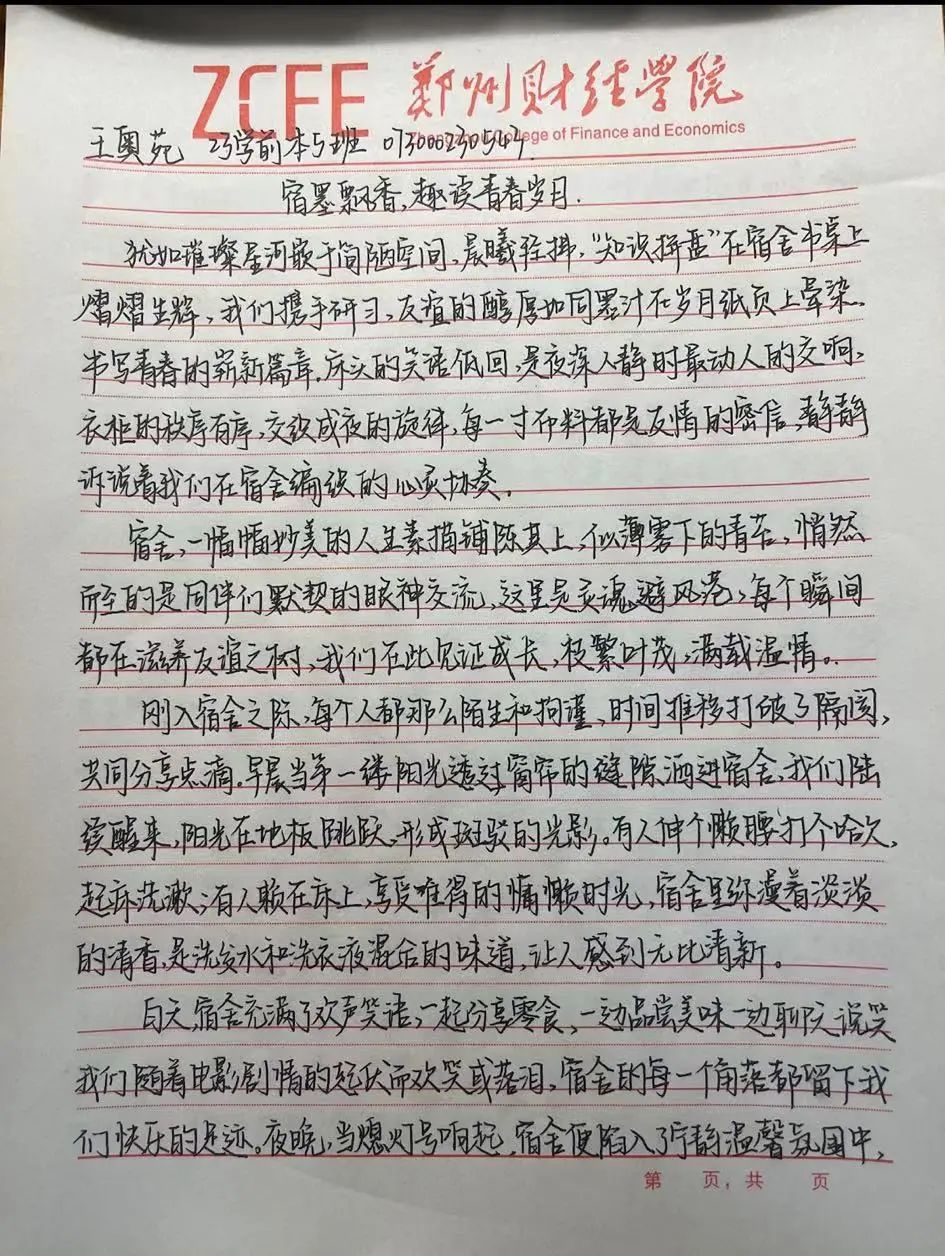 ZCFE 郑州财经学院
Zhengzhou College of Finance and Economics
王奥苑 23学前本5班 07300230543.
宿墨飘香,趣读青春岁月.
犹如璀璨星河嵌于简陋空间,晨曦轻拂,“知识拼盘”在宿舍书桌上
熠熠生辉,我们携手研习,友谊的醇厚如同墨汁在岁月纸页上晕染,
书写青春的崭新篇章.床头的笑语低回,是夜深人静时最动人的交响。
衣柜的秩序有序,交织成夜的旋律,每一寸布料都是友情的密信,静静
诉说着我们在宿舍编织的心灵协奏.
宿舍,一幅幅妙美的人生素描铺陈其上,似薄雾下的青苔,悄然
而至的是同伴们默契的眼神交流,这里是灵魂避风港,每个瞬间
都在滋养友谊之树,我们在此见证成长,枝繁叶茂,满载温情。
刚入宿舍之际,每个人都那么陌生和拘谨,时间推移打破了隔阂,
共同分享点滴.早晨当第一缕阳光透过窗帘的缝隙洒进宿舍,我们陆
续醒来,阳光在地板跳跃,形成斑驳的光影。有人伸个懒腰打个哈欠,
起床洗漱;有人赖在床上,享受难得的慵懒时光,宿舍里弥漫着淡淡
的清香,是洗发水和洗衣液混合的味道,让人感到无比清新。
白天,宿舍充满了欢声笑语,一起分享零食,一边品尝美味一边聊天说笑
我们随着电影剧情的起伏而欢笑或落泪,宿舍的每一个角落都留下我
们快乐的足迹。夜晚,当熄灯号响起,宿舍便陷入了宁静温馨氛围中,
第 页,共 页